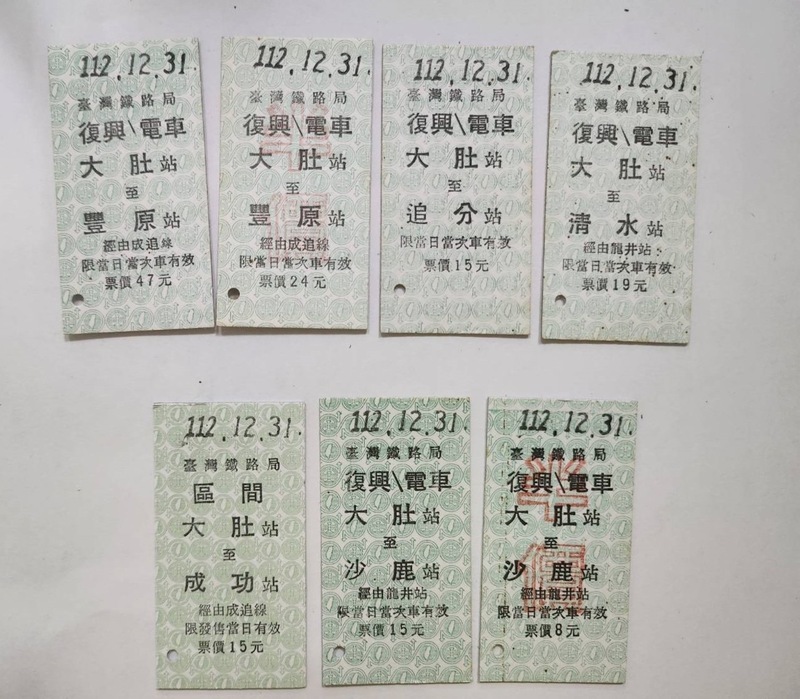 112.12.31.
臺灣鐵路局
復興\電車
大肚站
至
豐原站
經由成追線
限當日當次車有效
票價47元
112.12.31.
臺灣鐵路局
復興\電車
半價
大肚站
至
豐原站
經由成追線
限當日當次車有效
票價24元
112.12.31.
臺灣鐵路局
復興\電車
大肚站
至
追分站
限當日當次車有效
票價15元
112.12.31.
臺灣鐵路局
復興\電車
大肚站
至
清水站
經由龍井站
限當日當次車有效
票價19元
112.12.31.
臺灣鐵路局
區間
大肚站
至
成功站
經由成追線
限發售當日有效
票價15元
112.12.31.
臺灣鐵路局
復興\電車
大肚站
至
沙鹿站
經由龍井站
限當日當次車有效
票價15元
112.12.31.
臺灣鐵路局
復興\電車
半價
大肚站
至
沙鹿站
經由龍井站
限當日當次車有效
票價8元